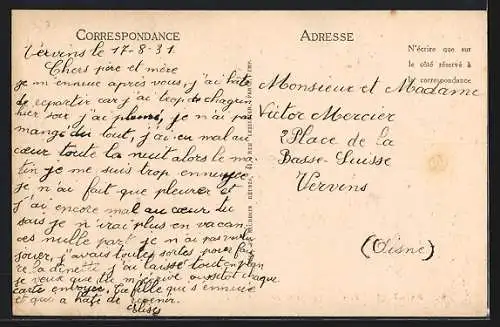 CORRESPONDANCE
Vervins le 17-8-31
Chers père et mère
je m'ennuie après vous, j'ai hâte
de repartir car j'ai trop de chagrin
hier soir, j'ai pleuré, je n'ai pas
mangé du tout, j'ai eu mal au
cœur toute la nuit alors le ma-
tin je me suis trop ennuyée
je n'ai fait que pleurer et
j'ai encore mal au cœur tu
sais je n'irai plus en vacan
ces nulle part je n'ai pas voulu
jouer, j'avais toutes sortes pour fai
re la dinette j'ai laissé tout en plan
je veux que tu m'écrive aussitôt chaque
carte envoyée, ta fille qui s'ennuie
et qui a hâte de revenir.
ADRESSE
N'écrire que sur
le côté réservé à
la correspondance
Monsieur et Madame
Victor Mercier
2 Place de la
Basse-Suisse
Vervins
(Aisne)